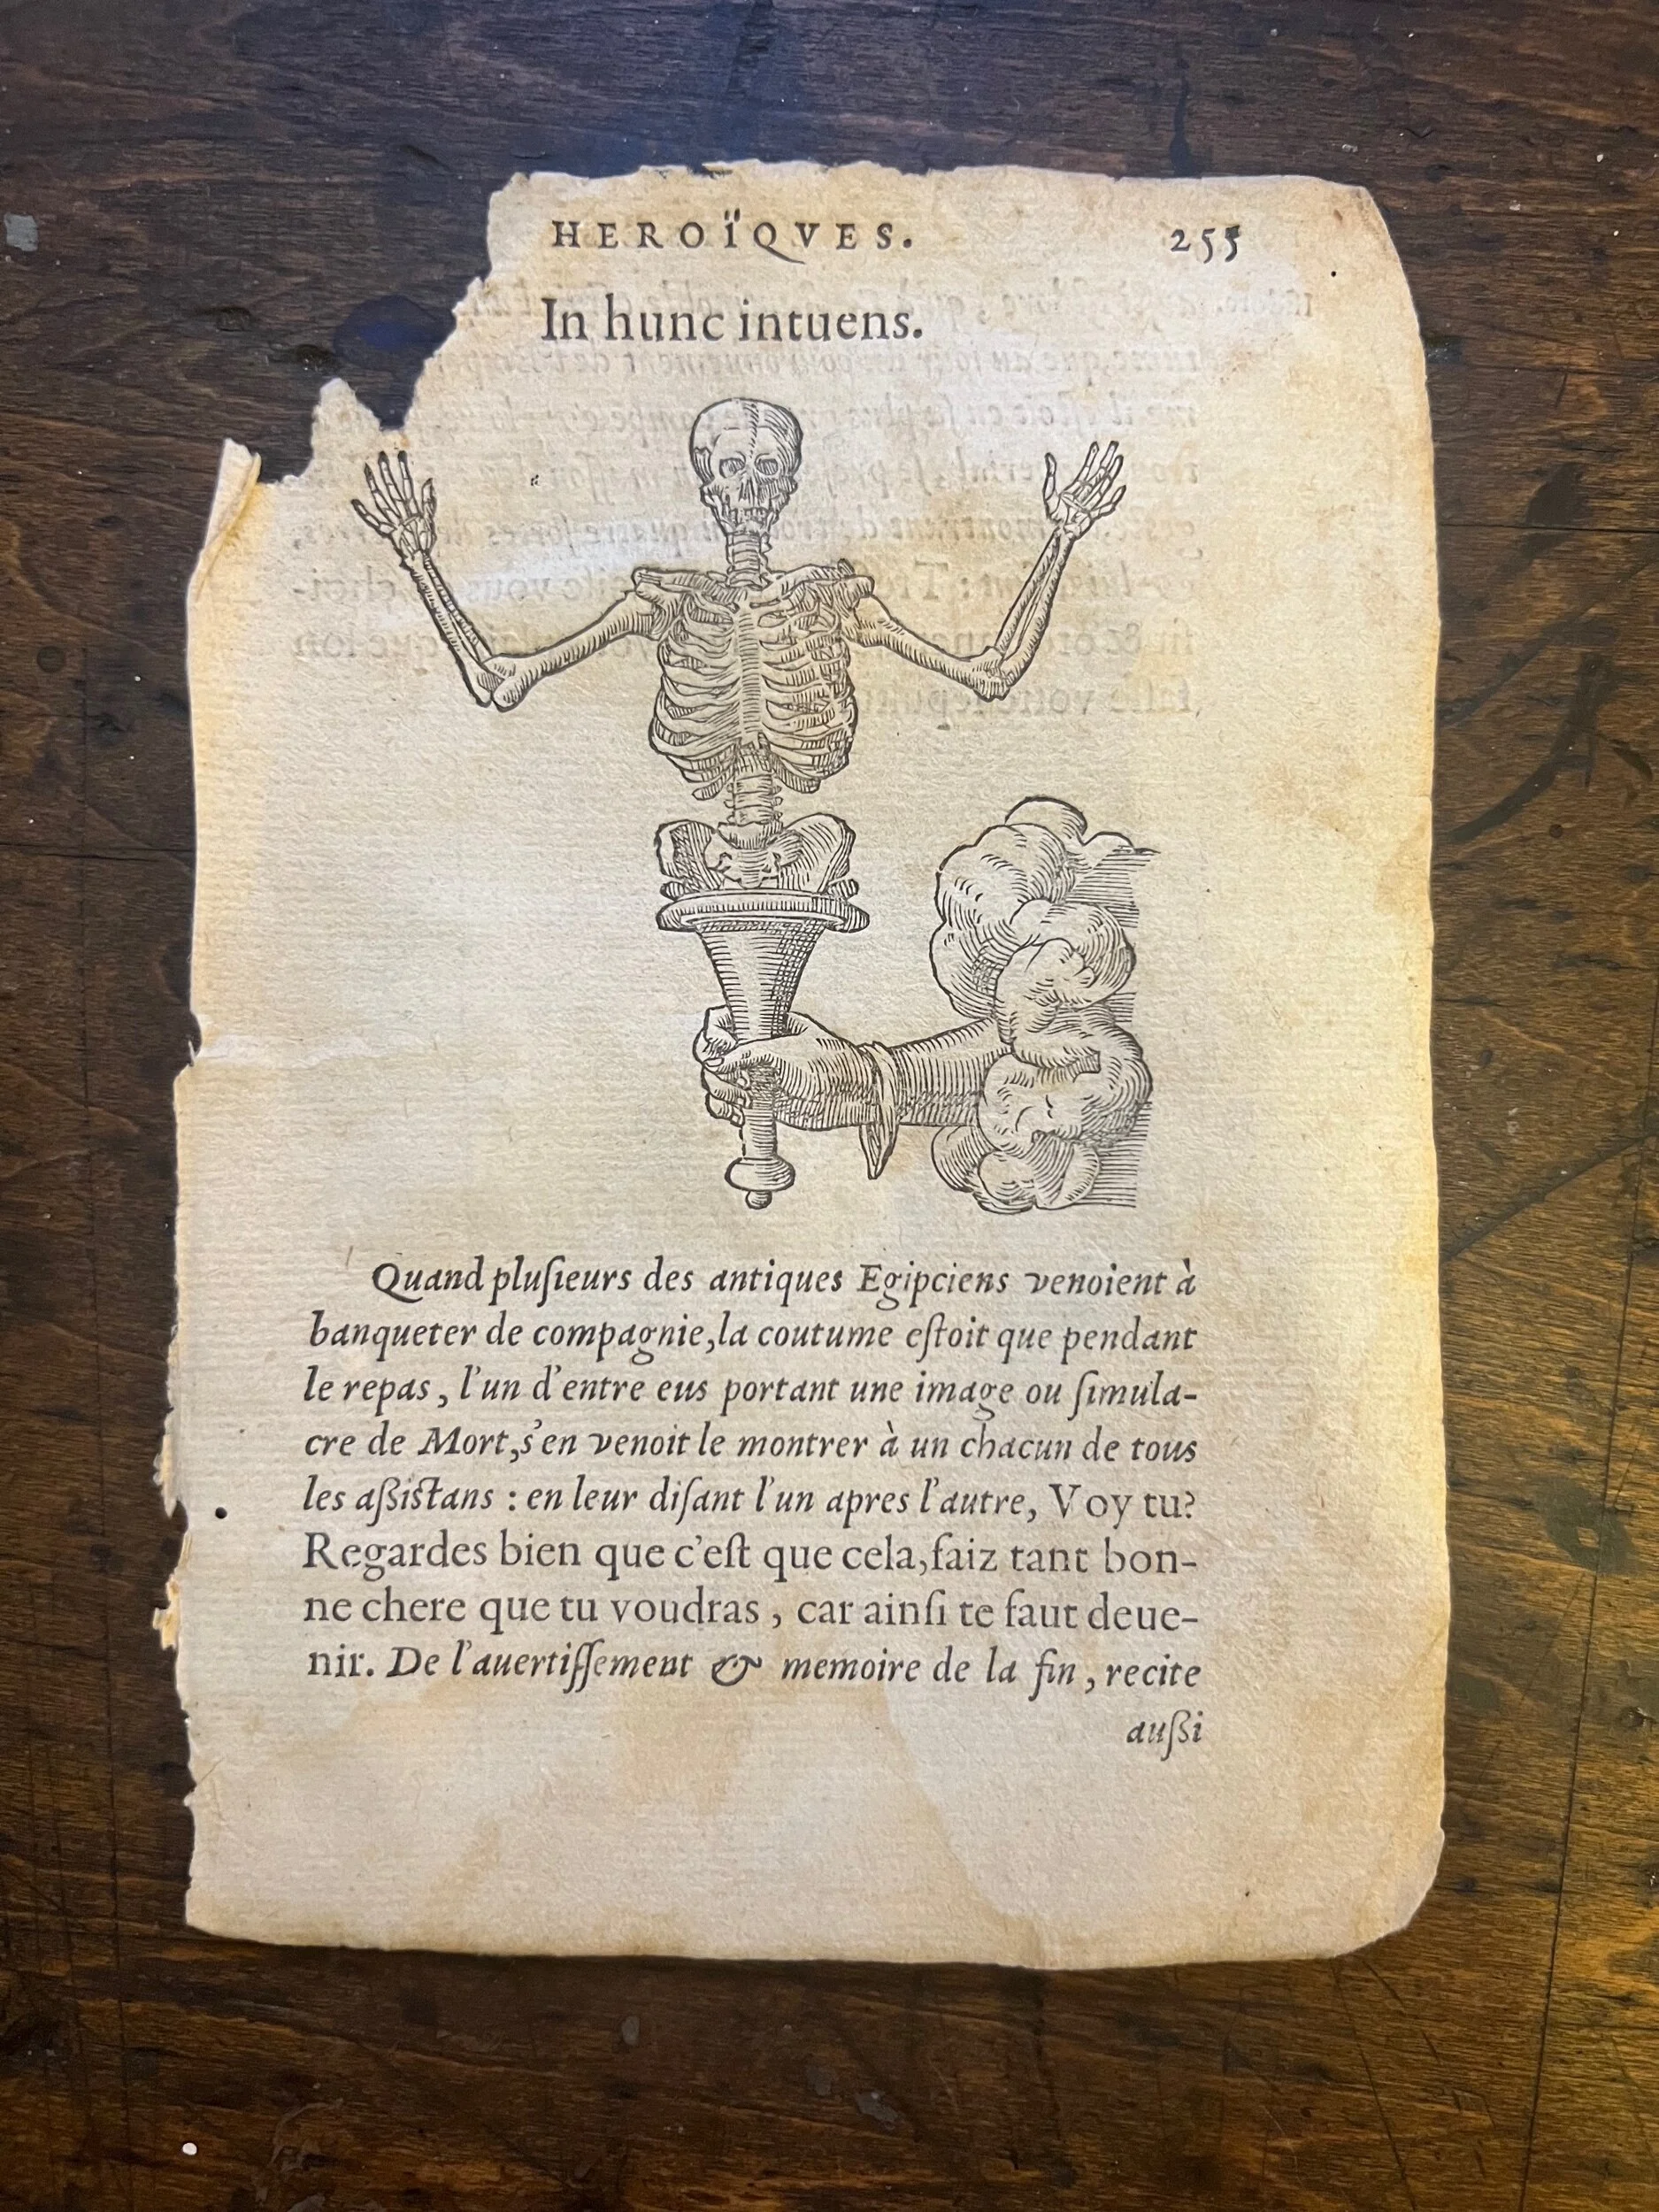 HEROÏQVES. 255
In hunc intuens.
Quand pluſieurs des antiques Egipciens venoient à
banqueter de compagnie, la coutume eſtoit que pendant
le repas, l'un d'entre eus portant une image ou ſimula-
cre de Mort, s'en venoit le montrer à un chacun de tous
les aſsiſtans : en leur diſant l'un apres l'autre, Voy tu?
Regardes bien que c'eſt que cela, faiz tant bon-
ne chere que tu voudras, car ainſi te faut deue-
nir. De l'auertiſſement & memoire de la fin, recite
auſsi